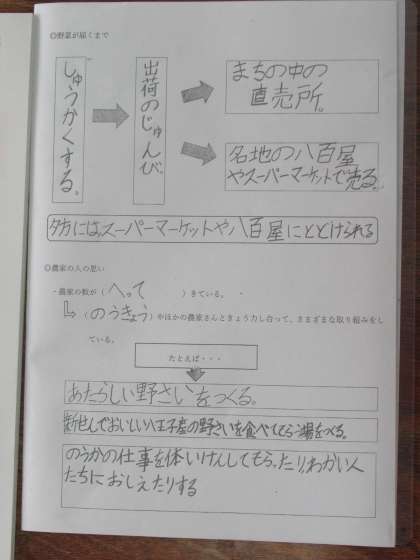 ◎野菜が届くまで
しゅうかくする。
出荷のじゅんび。
まちの中の
直売所。
各地の八百屋
やスーパーマーケットで売る。
夕方には、スーパーマーケットや八百屋にとどけられる
◎農家の人の思い
・農家の数が(へって)きている。
(のうきょう)やほかの農家さんときょう力し合って、さまざまな取り組みをし
ている。
たとえば・・・
あたらしい野さいをつくる。
新せんでおいしい八王子産の野さいを食べてもらう場をつくる。
のうかの仕事を体けんしてもらったり、わかい人
たちにおしえたりする